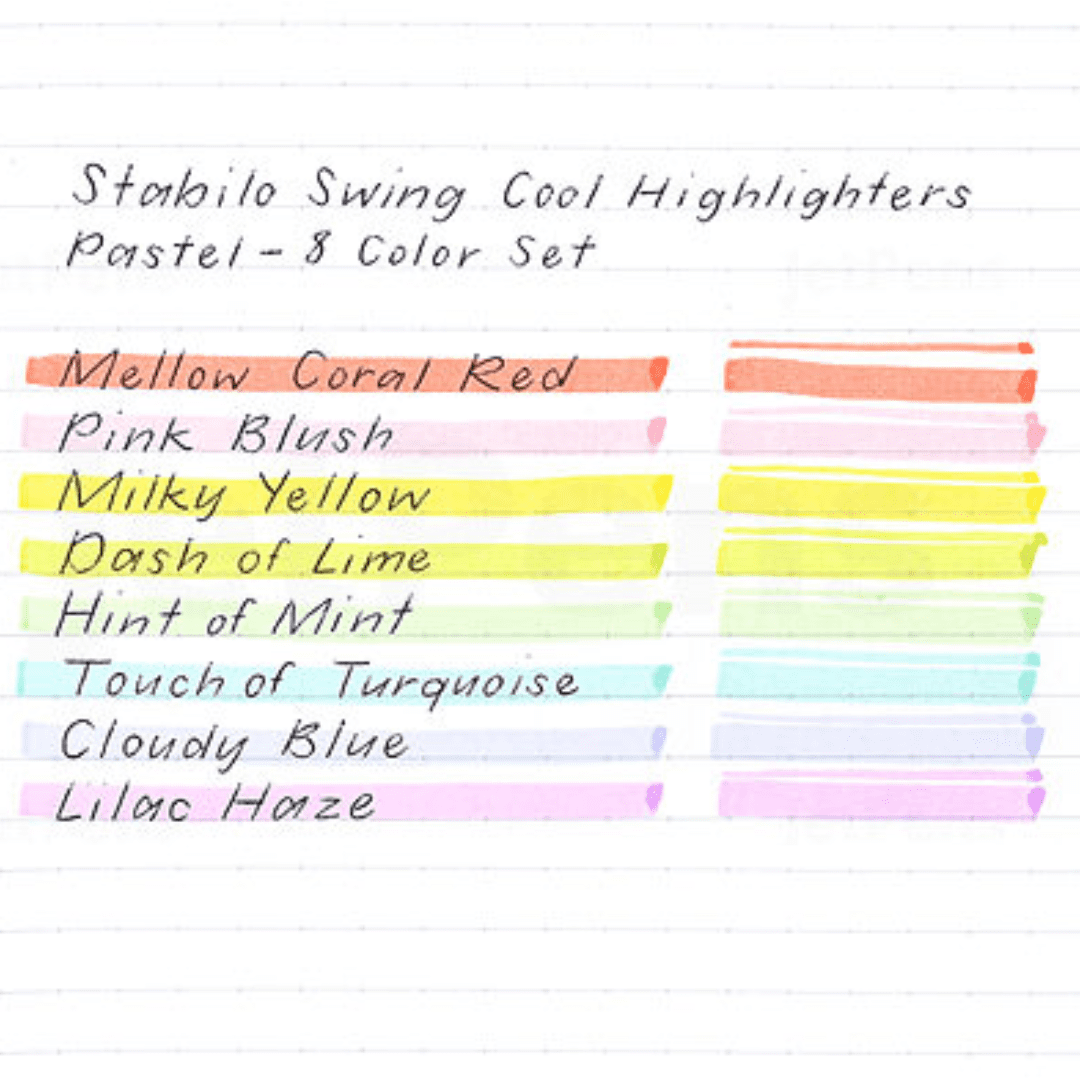 Stabilo Swing Cool Highlighters
Pastel - 8 Color Set
Mellow Coral Red
Pink Blush
Milky Yellow
Dash of Lime
Hint of Mint
Touch of Turquoise
Cloudy Blue
Lilac Haze
JetPens
JetPens